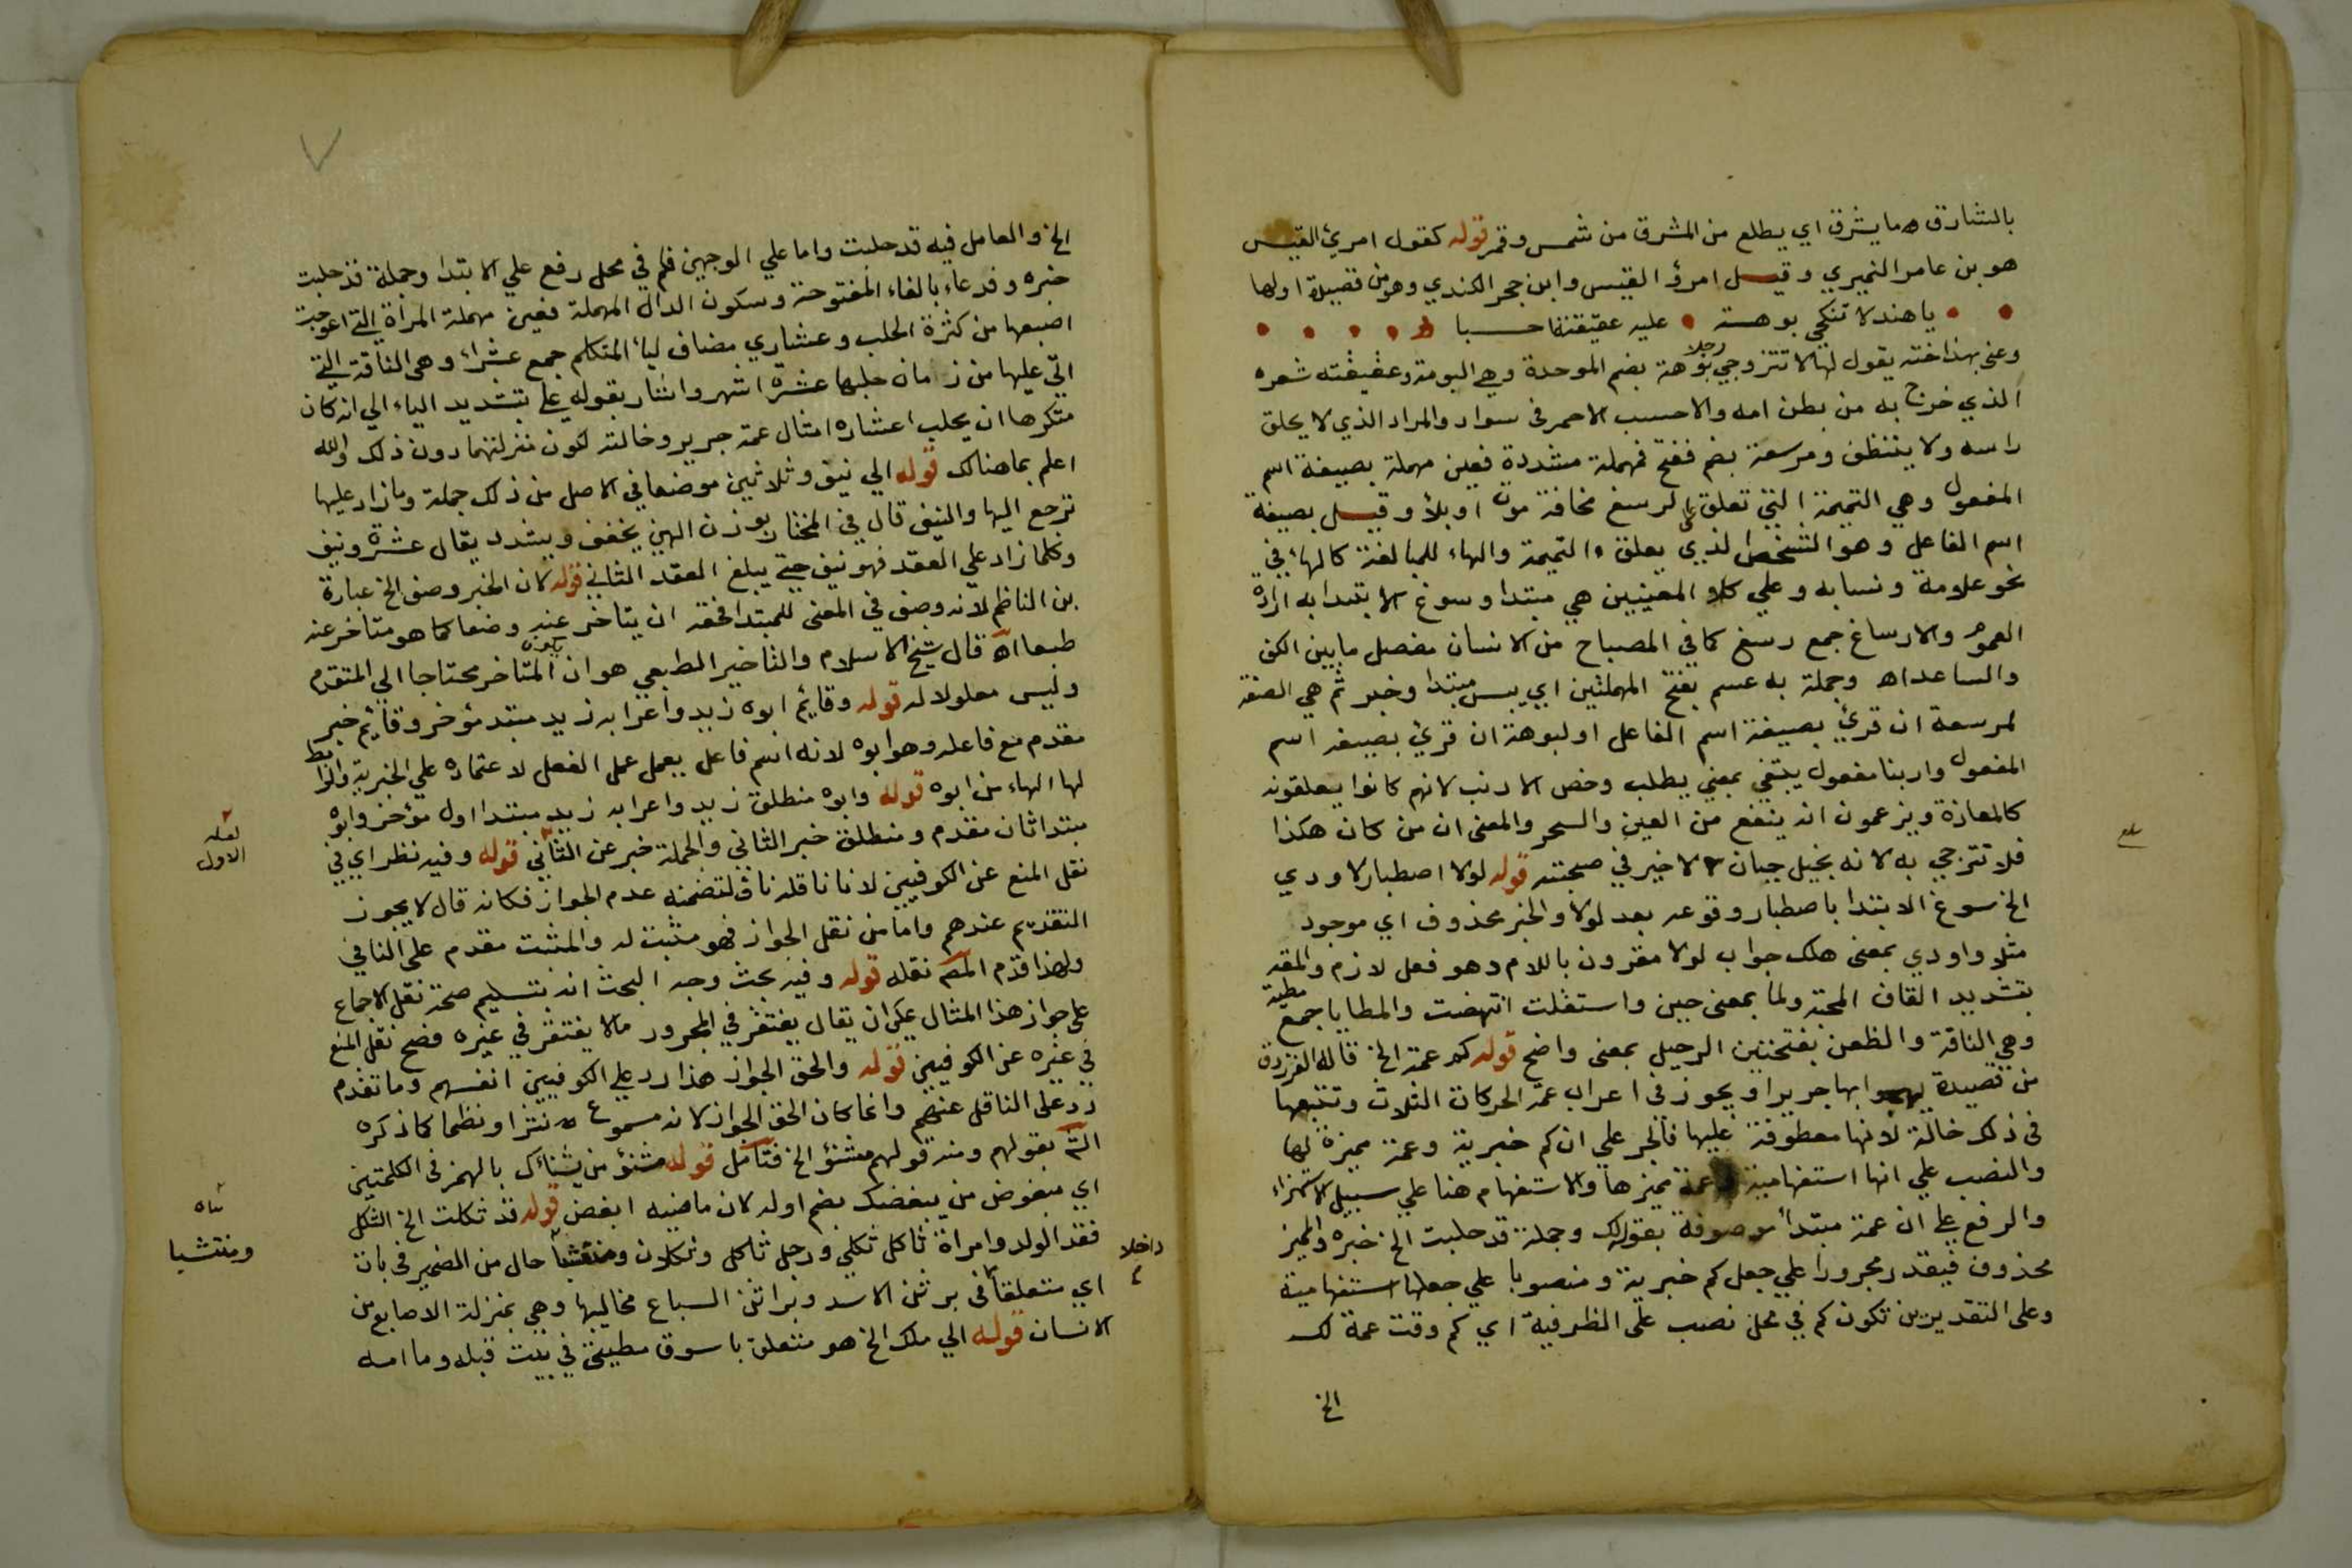 بالشارق ه ما يشرق اي يطلع من المشرق من شمس وقمر قوله كقول امرئ القيس
هو بن عامر النميري وقيل امرؤ القيس وابن حجر الكندي وهو من قصيدة اولها
يا هند لا تنكحي بوهة عليه عقيقته احسبا
وعنى بهذا اخته يقول لها لا تتزوجي رجلا بوهة بضم الموحدة وهي البومة وعقيقته شعره
الذي خرج به من بطن امه والاحسب الاحمر في سواد والمراد الذي لا يحلق
راسه ولا يتنظف ومرسعة بضم ففتح فمهملة مشددة فعين مهملة بصيغة اسم
المفعول وهي التميمة التي تعلق على الرسغ مخافة موت او بلأ وقيل بصيغة
اسم الفاعل وهو الشخص الذي يعلق التميمة والهاء للمبالغة كالهاء في
نحو علومة ونسابه وعلي كلا المعنيين هي مبتدا وسوغ الابتدا به ارادة
العموم والارساغ جمع رسغ كما في المصباح من الانسان مفصل ما بين الكف
والساعد اه وجملة به عسم بفتح المهملتين اي يبس مبتدا وخبر ثم هي الصفة
لمرسعة ان قرئ بصيغة اسم الفاعل او لبوهة ان قرئ بصيغة اسم
المفعول واربنا مفعول يبتغي بمعني يطلب وخص الارنب لانهم كانوا يعلقونه
كالمعاذة ويزعمون انه ينفع من العين والسحر والمعنى ان من كان هكذا
فلا تتزجي به لانه بخيل جبان لا خير في صحبته قوله لولا اصطبار لاودي
الخ سوغ الابتدا باصطبار وقوعه بعد لولا والخبر محذوف اي موجود
مثلا واودي بمعنى هلك جواب لولا مقرون باللام وهو فعل لازم والمقة
بتشديد القاف المحبة ولما بمعنى حين واستقلت انتهضت والمطايا جمع مطية
وهي الناقة والظعن بفتحتين الرحيل بمعنى واضح قوله كم عمة الخ قاله الفرزدق
من قصيدة يهجوا بها جريرا ويجوز في اعراب عمة الحركات الثلاث وتتبعها
في ذلك خالة لانها معطوفة عليها فالجر علي ان كم خبرية وعمة مميزة لها
والنصب علي انها استفهامية وعمة مميزها والاستفهام هنا علي سبيل الاستهزاء
والرفع على ان عمة مبتدأ موصوفة بقوله لك وجملة قد حلبت الخ خبره والمميز
محذوف فيقدر مجرورا علي جعل كم خبرية ومنصوبا علي جعلها استفهامية
وعلى التقديرين تكون كم في محل نصب على الظرفية اي كم وقت عمة لك
الخ
الخ والعامل فيه قد حلبت واما علي الوجهين فكم في محل رفع علي الابتدا وجملة قد حلبت
خبره وفدعاء بالفاء المفتوحة وسكون الدال المهملة فعين مهملة المرأة التي اعوجت
اصبعها من كثرة الحلب وعشاري مضاف ليأ المتكلم جمع عشراء وهي الناقة التي
اتي عليها من زمان حلبها عشرة اشهر واشار بقوله علي بتشديد الياء الي انه كان
متكرها ان يحلب عشاره امثال عمة جرير وخالته لكون منزلتهما دون ذلك والله
اعلم بما هنالك قوله الي نيف وثلاثين موضعا في الاصل من ذلك جملة وما زاد عليها
ترجع اليها والنيف قال في المختار بوزن الهين يخفف ويشدد يقال عشرة ونيف
وكلما زاد علي العقد فهو نيف حتى يبلغ العقد الثاني قوله لان الخبر وصف الخ عبارة
بن الناظم لانه وصف في المعنى للمبتدا فحقه ان يتاخر عنه وضعا كما هو متاخر عنه
طبعا اه قال شيخ الاسلام والتاخير الطبعي هو ان يكون المتاخر محتاجا الي المتقدم
وليس معلولا له قوله وقائم ابوه زيد واعرابه زيد مبتد مؤخر وقائم خبر
مقدم مع فاعله وهو ابوه لانه اسم فاعل يعمل عمل الفعل لاعتماده علي الخبرية والرابط
لها الهاء من ابوه قوله وابوه منطلق زيد واعرابه زيد مبتدا اول مؤخر وابوه
مبتدا ثان مقدم ومنطلق خبر الثاني والجملة خبر عن الثاني قوله وفيه نظر اي في
لعله
الاول
نقل المنع عن الكوفيين لانا ناقله ناف لتضمنه عدم الجواز فكانه قال لا يجوز
التقديم عندهم واما من نقل الجواز فهو مثبت له والمثبت مقدم على النافي
ولهذا قدم المص نقله قوله وفيه بحث وجه البحث انه بتسليم صحة نقل الاجماع
على جواز هذا المثال يمكن ان يقال يغتفر في المجرور ما لا يغتفر في غيره فصح نقل المنع
في غيره عن الكوفيين قوله والحق الجواز هذا رد على الكوفيين انفسهم وما تقدم
رد على الناقل عنهم وانما كان الحق الجواز لانه مسموع نثرا ونظما كما ذكره
الش بقولهم ومنه قولهم مشنؤ الخ فتامل قوله مشنؤ من يشنأك بالهمز في الكلمتين
اي مبغوض من يبغضك بضم اوله لان ماضيه ابغض قوله قد ثكلت الخ الثكل
فقد الولد وامراة ثاكل ثكلي ورجل ثاكل وثكلان ومنتشبا حال من الضمير في بات
ومنتشبا
داخلا
اي متعلقا في برثن الاسد وبراثن السباع مخاليبها وهي بمنزلة الاصابع من
الانسان قوله الي ملك الخ هو متعلق باسوق مطيتي في بيت قبله وما امه